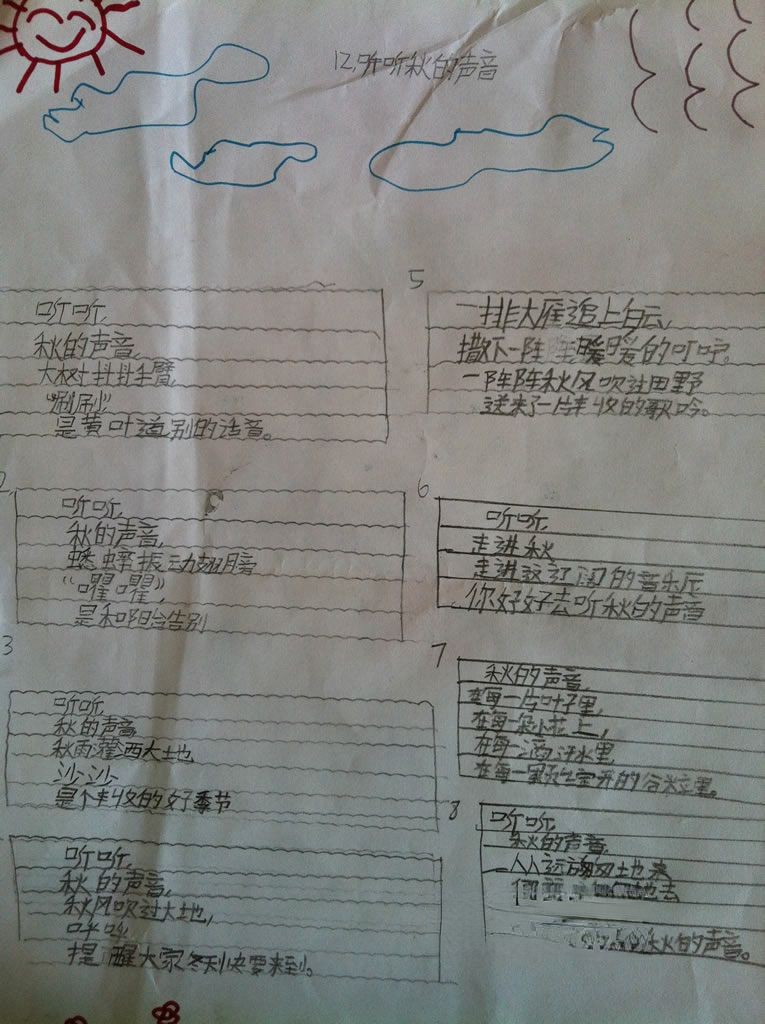 12.听听秋的声音
听听,
秋的声音,
大树抖抖手臂,
“唰唰”
是黄叶道别的话音。
2
听听,
秋的声音,
蟋蟀振动翅膀
“嚁嚁”,
是和阳台告别
3
听听,
秋的声音
秋雨灌洒大地
沙沙
是个丰收的好季节
听听,
秋的声音,
秋风吹过大地,
呼呼
提醒大家冬天快要来到。
5
一排大雁追上白云,
撒下一阵阵暖暖的叮咛。
一阵阵秋风吹过田野
送来了一片丰收的歌吟。
6
听听,
走进秋
走进这辽阔的音乐厅
你好好去听秋的声音
7
秋的声音,
在每一片叶子里,
在每一朵小花上,
在每一滴汗水里
在每一颗饱绽开的谷粒里。
8
听听,
秋的声音,
从远方匆匆地来
地去
秋的声音。